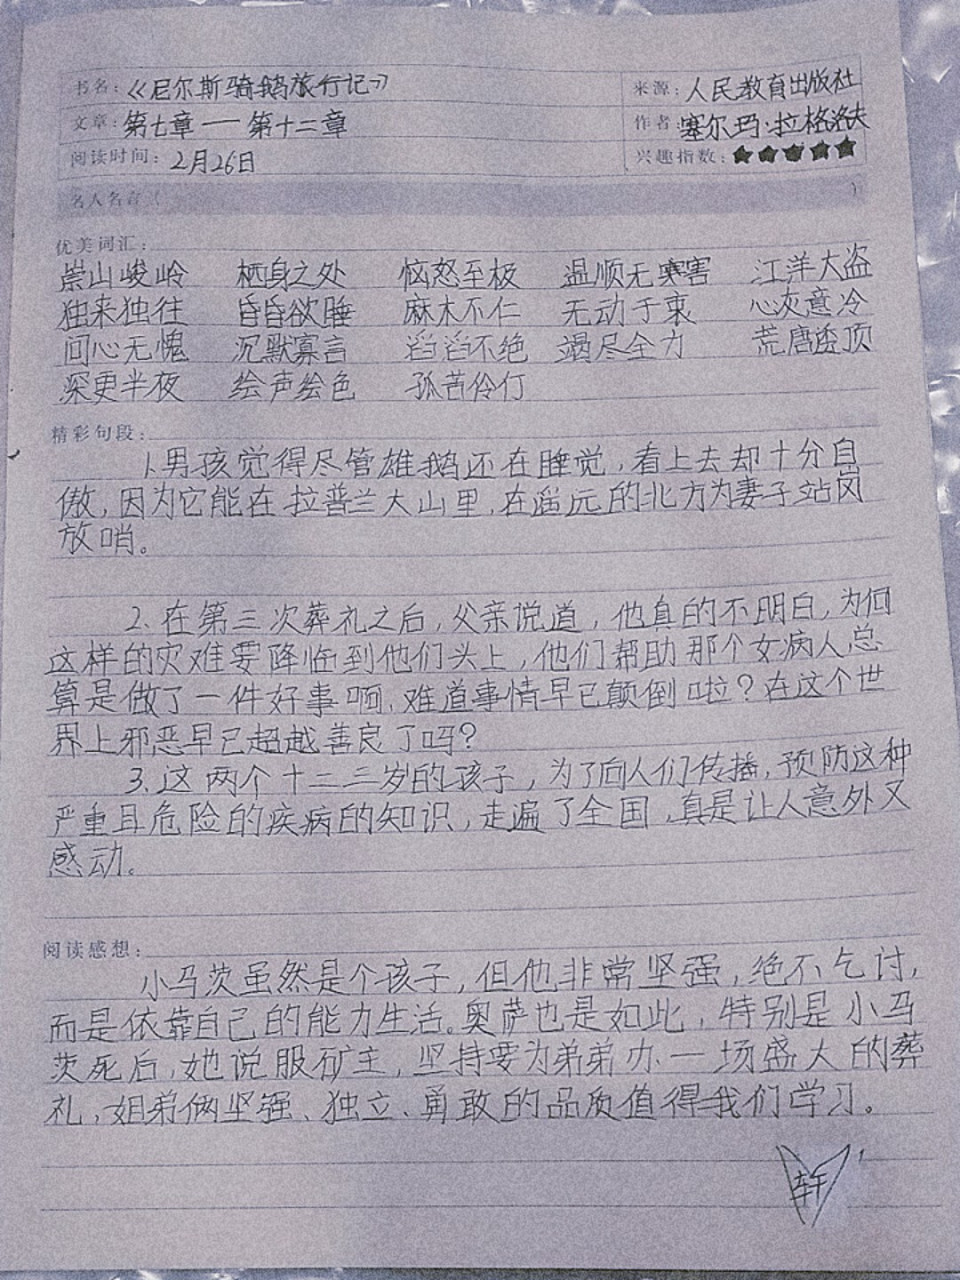 书名：《尼尔斯骑鹅旅行记》 来源：人民教育出版社
文章：第七章——第十二章 作者：塞尔玛·拉格洛夫
阅读时间：2月26日 兴趣指数：★★★★★
名人名言（ ）
优美词汇：
崇山峻岭 栖身之处 恼怒至极 温顺无害 江洋大盗
独来独往 昏昏欲睡 麻木不仁 无动于衷 心灰意冷
问心无愧 沉默寡言 滔滔不绝 竭尽全力 荒唐透顶
深更半夜 绘声绘色 孤苦伶仃
精彩句段：
1.男孩觉得尽管雄鹅还在睡觉，看上去却十分自
傲，因为它能在拉普兰大山里，在遥远的北方为妻子站岗
放哨。
2.在第三次葬礼之后，父亲说道，他真的不明白，为何
这样的灾难要降临到他们头上，他们帮助那个女病人总
算是做了一件好事啊，难道事情早已颠倒啦？在这个世
界上邪恶早已超越善良了吗？
3.这两个十二三岁的孩子，为了向人们传播，预防这种
严重且危险的疾病的知识，走遍了全国，真是让人意外又
感动。
阅读感想：
小马茨虽然是个孩子，但他非常坚强，绝不乞讨，
而是依靠自己的能力生活。奥萨也是如此，特别是小马
茨死后，她说服矿主，坚持要为弟弟办一场盛大的葬
礼，姐弟俩坚强、独立、勇敢的品质值得我们学习。
轩